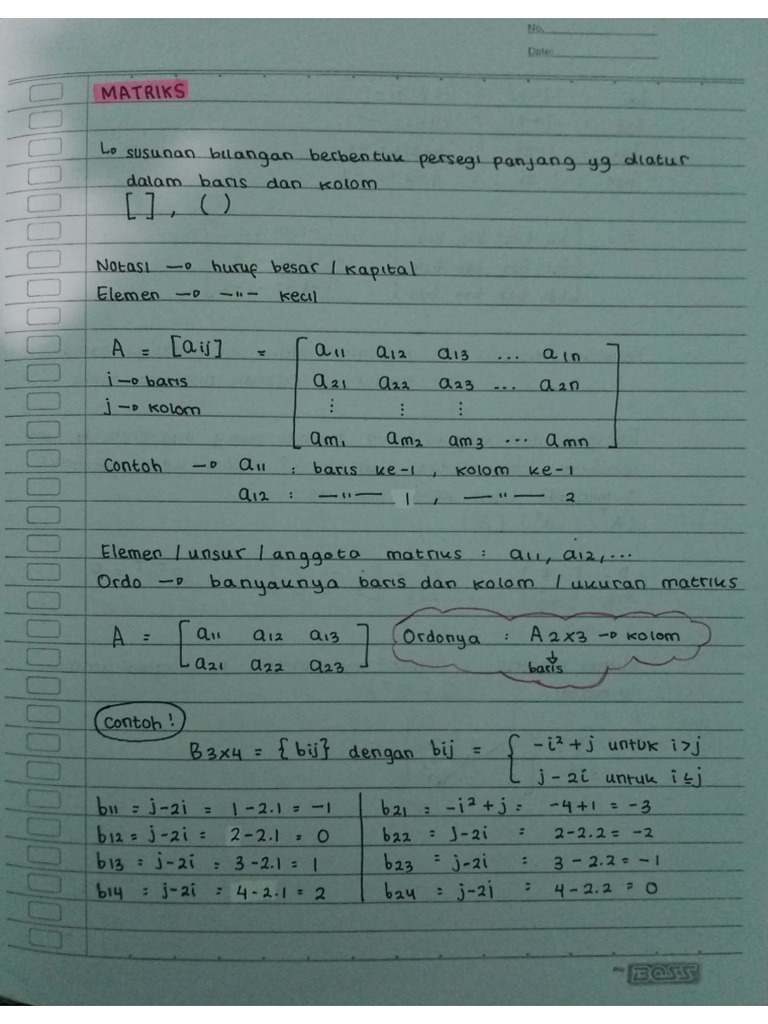 No.
Date:
MATRIKS
↳ susunan bilangan berbentuk persegi panjang yg diatur
dalam baris dan kolom
[ ] , ( )
Notasi → huruf besar / kapital
Elemen → —"— kecil
A = [aij] = [ a11 a12 a13 ... a1n
i → baris a21 a22 a23 ... a2n
j → kolom ⋮ ⋮ ⋮
am1 am2 am3 ... amn ]
Contoh → a11 : baris ke-1 , kolom ke-1
a12 : —"— 1 , —"— 2
Elemen / unsur / anggota matriks : a11, a12, ...
Ordo → banyaknya baris dan kolom / ukuran matriks
A = [ a11 a12 a13 Ordonya : A 2x3 → kolom
a21 a22 a23 ] ↓ baris
Contoh !
B3x4 = {bij} dengan bij = { -i² + j untuk i>j
j - 2i untuk i≤j
b11 = j-2i = 1-2.1 = -1
b12 = j-2i = 2-2.1 = 0
b13 = j-2i = 3-2.1 = 1
b14 = j-2i = 4-2.1 = 2
b21 = -i²+j = -4+1 = -3
b22 = j-2i = 2-2.2 = -2
b23 = j-2i = 3-2.2 = -1
b24 = j-2j = 4-2.2 = 0
BOSS